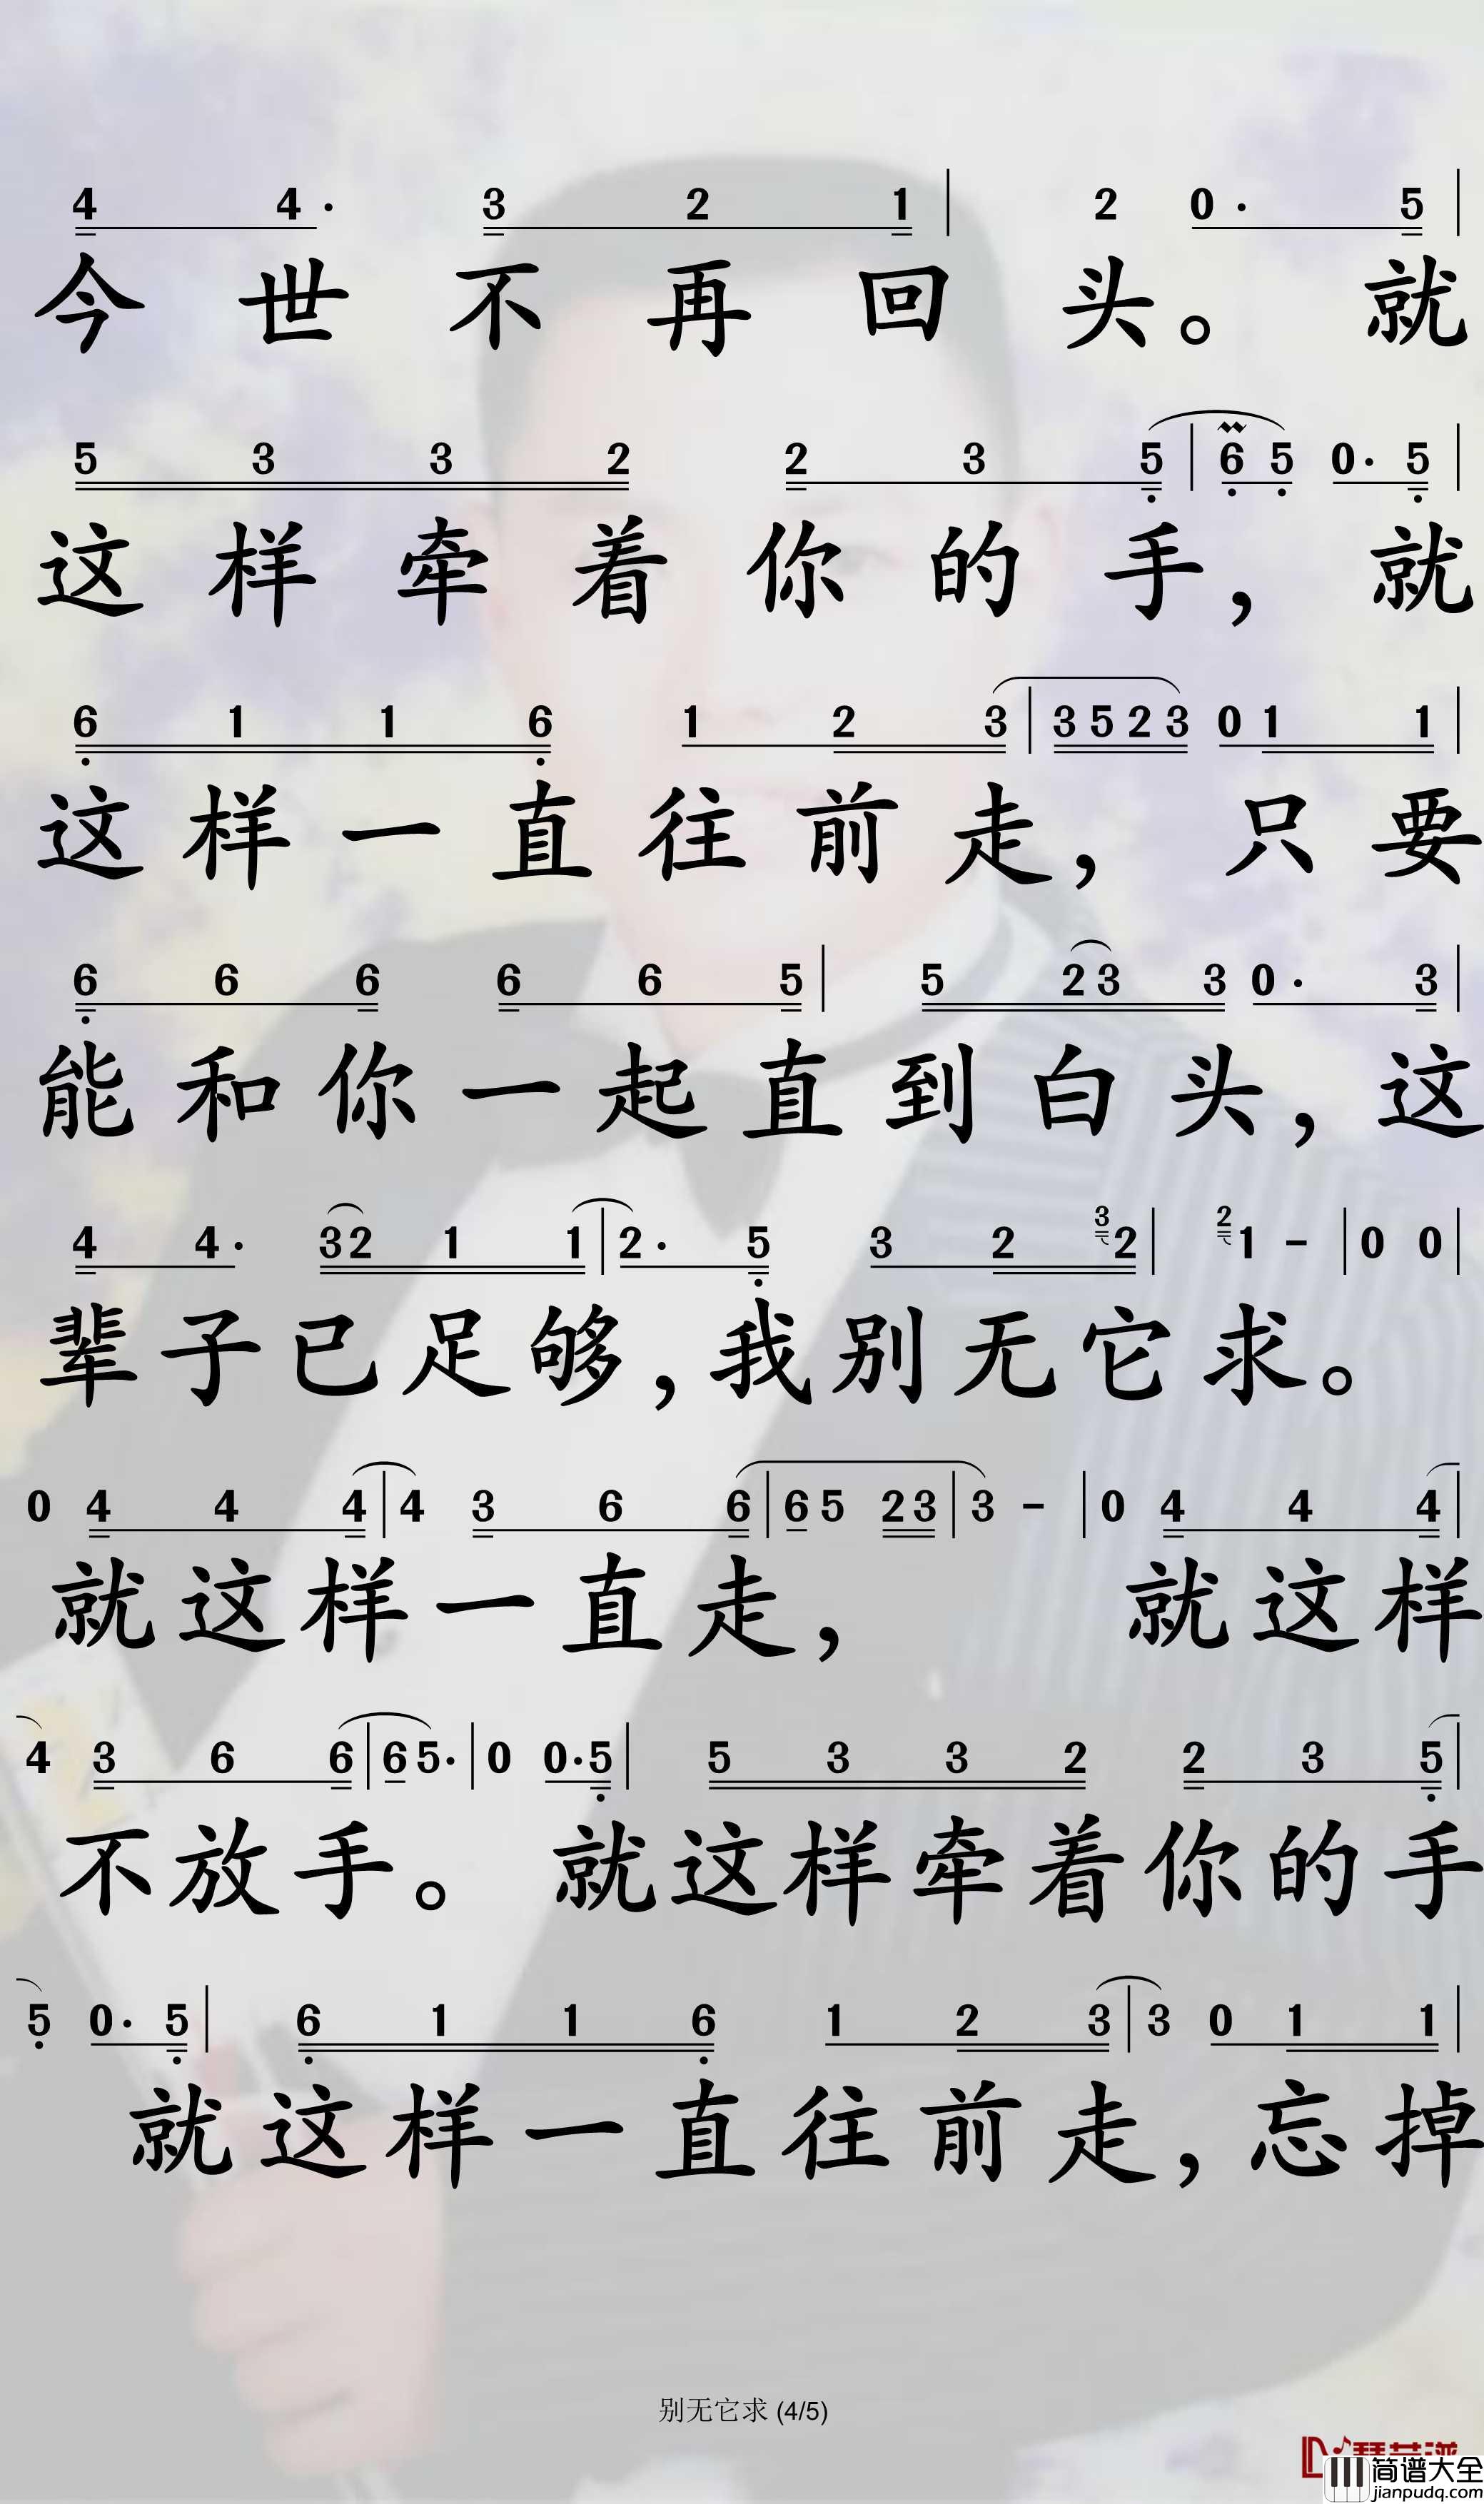 4 4· 3 2 1 | 2 0· 5 |
今世不再回头。就
5 3 3 2 2 3 5 | 6 5 0· 5 |
这样牵着你的手，就
6 1 1 6 1 2 3 | 3 5 2 3 0 1 1 |
这样一直往前走，只要
6 6 6 6 6 5 | 5 2 3 3 0· 3 |
能和你一起直到白头，这
4 4· 3 2 1 1 | 2· 5 3 2 3 2 | 2 1 - | 0 0 |
辈子已足够，我别无它求。
0 4 4 4 | 4 3 6 6 | 6 5 2 3 | 3 - | 0 4 4 4 |
就这样一直走，就这样
4 3 6 6 | 6 5· | 0 0· 5 | 5 3 3 2 2 3 5 |
不放手。就这样牵着你的手
5 0· 5 | 6 1 1 6 1 2 3 | 3 0 1 1 |
就这样一直往前走，忘掉
别无它求 (4/5)
简谱大全
jianpudq.com